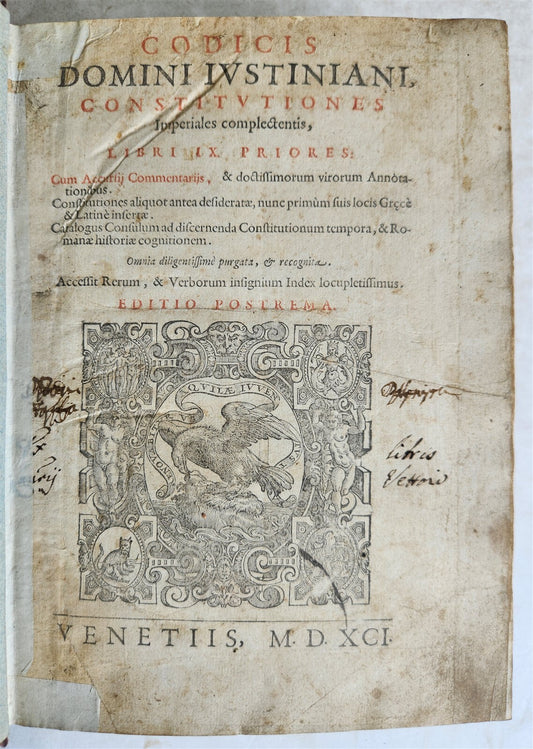 CODICIS
DOMINI IVSTINIANI,
CONSTITVTIONES
Imperiales complectentis,
LIBRI IX PRIORES:
Cum Accursij Commentarijs, & doctissimorum virorum Annota-
tionibus.
Constitutiones aliquot antea desideratæ, nunc primùm suis locis Gręcè
& Latinè insertæ.
Catalogus Consulum ad discernenda Constitutionum tempora, & Ro-
manæ historiæ cognitionem.
Omnia diligentissimè purgata, & recognita.
Accessit Rerum, & Verborum insignium Index locupletissimus.
EDITIO POSTREMA.
AQVILÆ IVVEN
libris
VENETIIS, M. D. XCI.